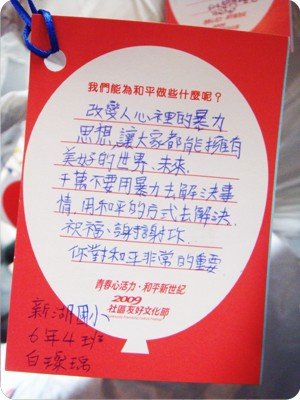 我們能為和平做些什麼呢？
改變人心裡的暴力
思想，讓大家都能擁有
美好的世界、未來.
千萬不要用暴力去解決事
情，用和平的方式去解決.
祝福、謝謝你.
你對和平非常的重要.
青春心活力・和平新世紀
2009
社區友好文化節
新湖國小
6年4班
白璨瑀